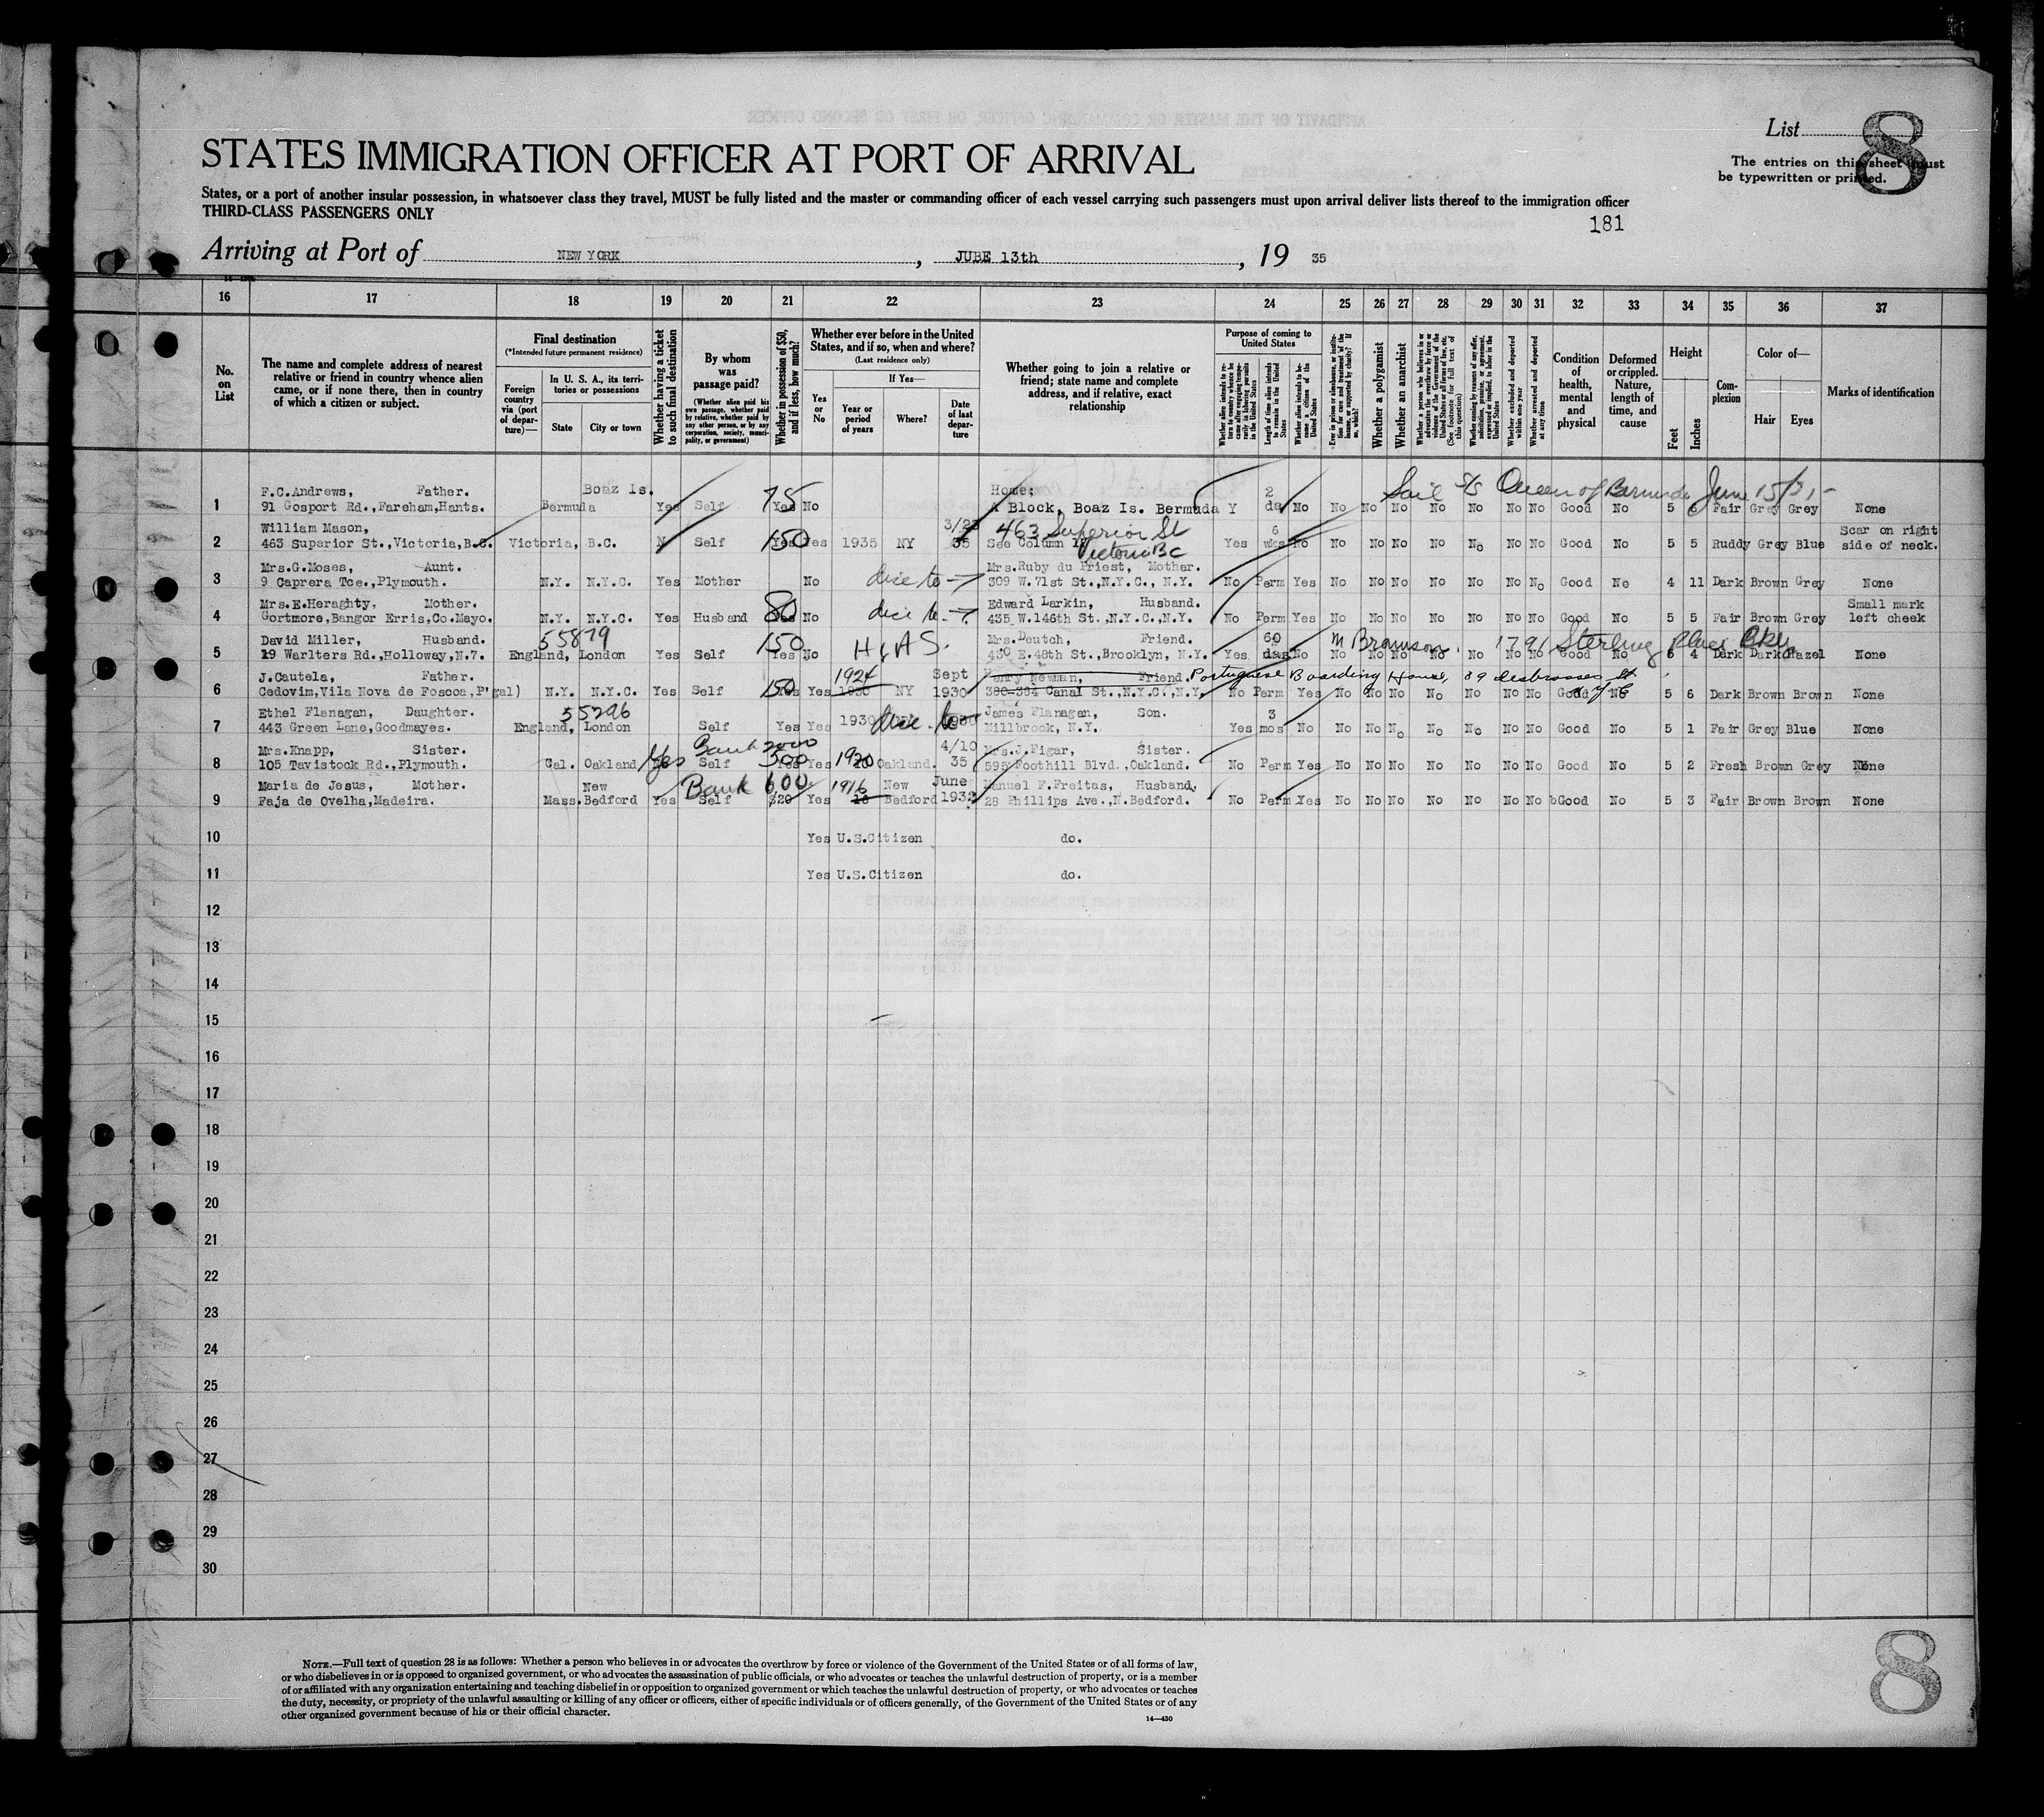 List 8
STATES IMMIGRATION OFFICER AT PORT OF ARRIVAL
The entries on this sheet must
be typewritten or printed.
States, or a port of another insular possession, in whatsoever class they travel, MUST be fully listed and the master or commanding officer of each vessel carrying such passengers must upon arrival deliver lists thereof to the immigration officer
THIRD-CLASS PASSENGERS ONLY
181
Arriving at Port of NEW YORK, JUBE 13th, 19 35
16 17 18 19 20 21 22 23 24 25 26 27 28 29 30 31 32 33 34 35 36 37
No. on List
The name and complete address of nearest relative or friend in country whence alien came, or if none there, then in country of which a citizen or subject.
Final destination
(*Intended future permanent residence)
Foreign country via (port of departure)—
In U. S. A., its territories or possessions
State
City or town
Whether having a ticket to such final destination
By whom was passage paid?
(Whether alien paid his own passage, whether paid by relative, whether paid by any other person, or by any corporation, society, municipality, or government)
Whether in possession of $50, and if less, how much?
Whether ever before in the United States, and if so, when and where?
(Last residence only)
Yes or No
If Yes—
Year or period of years
Where?
Date of last departure
Whether going to join a relative or friend; state name and complete address, and if relative, exact relationship
Purpose of coming to United States
Length of time alien intends to remain in the United States
Whether alien intends to become a citizen of the United States
Whether a polygamist
Whether an anarchist
Whether excluded and deported within one year
Whether arrested and deported at any time
Condition of health, mental and physical
Deformed or crippled. Nature, length of time, and cause
Height
Feet
Inches
Complexion
Color of—
Hair
Eyes
Marks of identification
F.C.Andrews, Father. Boaz Is. 75 Home; 2 Sail S/S Queen of Bermuda June 15/31-
1 91 Gosport Rd.,Fareham,Hants. Bermuda Yes Self Yes No A Block, Boaz Is. Bermuda Y da No No No No No No No No Good No 5 6 Fair Grey Grey None
William Mason, 150 3/23 463 Superior St 6 Scar on right
2 463 Superior St.,Victoria,B.C. Victoria, B.C. N Self Yes Yes 1935 NY 35 See Column 1 Victoria BC Yes wks No No No No No No No No Good No 5 5 Ruddy Grey Blue side of neck.
Mrs.G.Moses, Aunt. Mrs.Ruby du Priest, Mother.
3 9 Caprera Tce.,Plymouth. N.Y. N.Y.C. Yes Mother No dice to → 309 W.71st St.,N.Y.C., N.Y. No Perm Yes No No No No No No No Good No 4 11 Dark Brown Grey None
Mrs.E.Heraghty, Mother. 80 Edward Larkin, Husband. Small mark
4 Gortmore,Bangor Erris,Co.Mayo. N.Y. N.Y.C. Yes Husband Yes No dice to → 435 W.146th St.,N.Y.C.,N.Y. No Perm Yes No No No No No No No Good No 5 5 Fair Brown Grey left cheek
David Miller, Husband. 55879 150 HIAS. Mrs.Deutch, Friend. 60 M Bromson. 1791 Sterling Place Bkly
5 19 Warlters Rd.,Holloway,N.7. England, London Yes Self Yes No 450 E.48th St.,Brooklyn, N.Y. Yes das No No No No No No No No Good No 5 4 Dark Dark Hazel None
J.Cautela, Father. 1924 Sept Henry Newman, Friend. Portuguese Boarding House, 89 desbrosses St
6 Cedovim,Vila Nova de Foscoa,P'gal) N.Y. N.Y.C. Yes Self 150 Yes Yes 1930 NY 1930 380-384 Canal St.,N.Y.C.,N.Y. No Perm Yes No No No No No No No Good No N Y C 5 6 Dark Brown Brown None
Ethel Flanagan, Daughter. 55296 James Flanagan, Son. 3
7 443 Green Lane,Goodmayes. England, London Self Yes Yes 1930 dice to Millbrook, N.Y. Yes mos No No No No No No No No Good No 5 1 Fair Grey Blue None
Mrs.Knapp, Sister. Bank 2000 4/10 Mrs.J.Figar, Sister.
8 105 Tavistock Rd.,Plymouth. Cal. Oakland Yes Self 500 Yes Yes 1920 Oakland. 35 595 Foothill Blvd.,Oakland. No Perm Yes No No No No No No No Good No 5 2 Fresh Brown Grey None
Maria de Jesus, Mother. New Bank 600 1916 New June Manuel F.Freitas, Husband.
9 Faja de Ovelha,Madeira. Mass. Bedford Yes Self $20 Yes 16 Bedford 1932 28 Phillips Ave.,N.Bedford. No Perm Yes No No No No No No No Good No 5 3 Fair Brown Brown None
10 Yes U.S.Citizen do.
11 Yes U.S.Citizen do.
12
13
14
15
16
17
18
19
20
21
22
23
24
25
26
27
28
29
30
NOTE.—Full text of question 28 is as follows: Whether a person who believes in or advocates the overthrow by force or violence of the Government of the United States or of all forms of law,
or who disbelieves in or is opposed to organized government, or who advocates the assassination of public officials, or who advocates or teaches the unlawful destruction of property, or is a member
of or affiliated with any organization entertaining and teaching disbelief in or opposition to organized government or which teaches the unlawful destruction of property, or who advocates or teaches
the duty, necessity, or propriety of the unlawful assaulting or killing of any officer or officers, either of specific individuals or of officers generally, of the Government of the United States or of any
other organized government because of his or their official character.
14—430
8